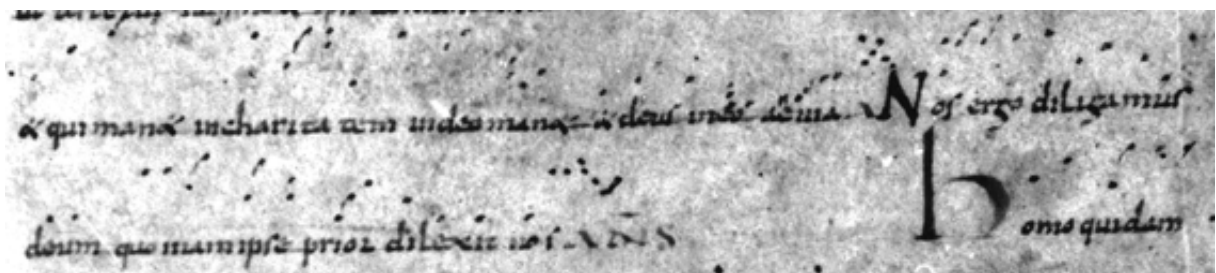 & qui man& in charitatem in deo man& & deus in eo aeuia Nos ergo diligamus
deum quoniam ipse prior dilexit nos
homo quidam